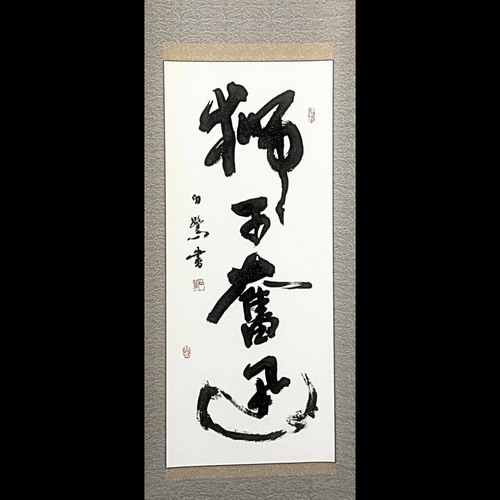 獅子奮迅
白鷺書